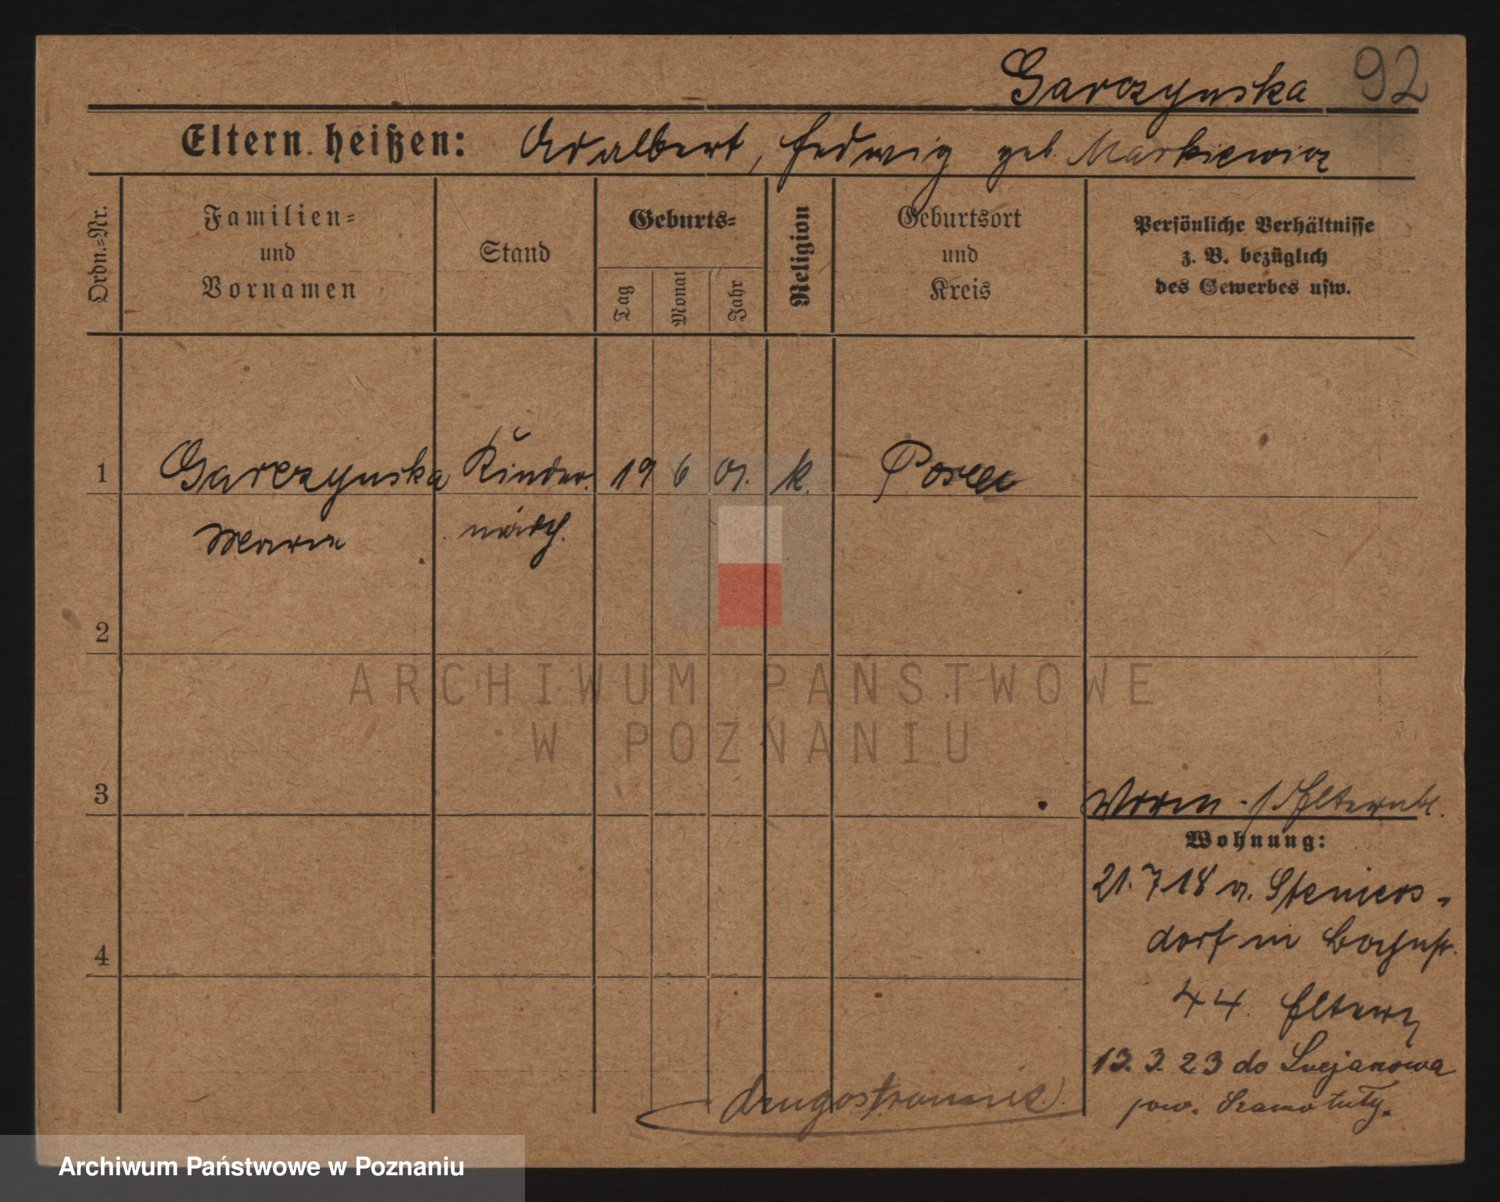 Garczynska 92
Eltern heißen: Adalbert, Hedwig geb. Markiewicz
Ordn.=Nr.
Familien=
und
Vornamen
Stand
Geburts=
Tag
Monat
Jahr
Religion
Geburtsort
und
Kreis
Persönliche Verhältnisse
z. B. bezüglich
des Gewerbes usw.
1 Garczynska Kinder 19 6 01. k. Posen
Maria mädch.
2
ARCHIWUM PAŃSTWOWE
W POZNANIU
3
Elternbl.
Wohnung:
21.7.18 v. Steiners-
dorf in
4
44. Eltern
13.3.23 do
pow. Szamotuły.
drugostronnie
Archiwum Państwowe w Poznaniu